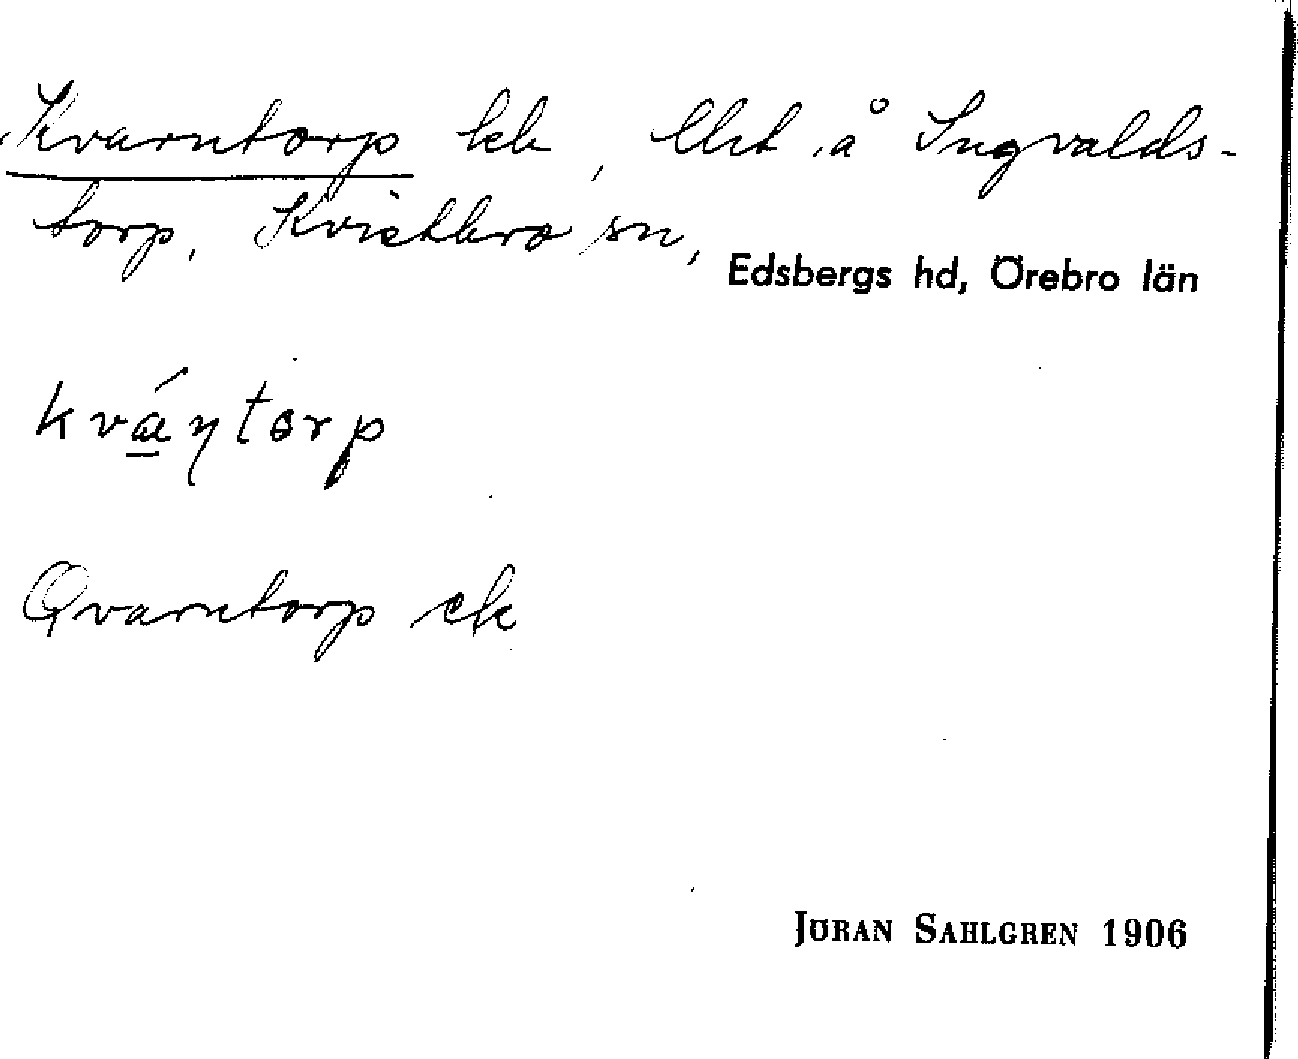 Kvarntorp
å Ingvalds-
torp, Kvistbro sn,
Edsbergs hd, Örebro län
kvǽntorp
Qvarntorp ek
JÖRAN SAHLGREN 1906